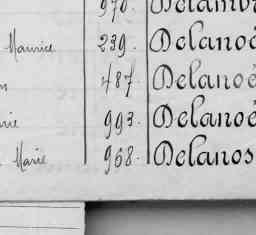 970. Delambr
Maurice 239. Delanoé
487. Delanoé
rie 993. Delanoë
Marie 968. Delanos